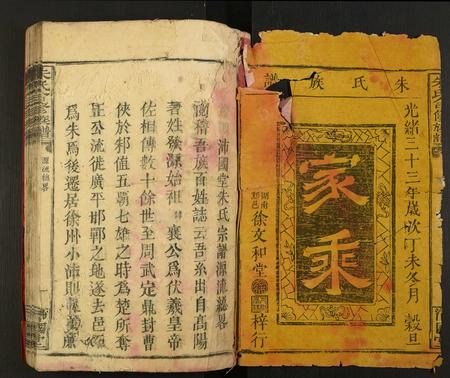 朱氏族譜
光緒三十三年歲次丁未冬月 穀旦
家乘
湖南
徐文和堂
梓行
沛國堂朱氏宗譜源流總畧
竊稽吾族百姓誌云吾系出自高陽
著姓發源始祖 襄公爲伏羲皇帝
佐相傳數十餘世至周武定鼎封曹
俠於邾值五霸七雄之時爲楚所奪
公流徙廣平邯鄲之地遂去邑
爲朱焉後遷居徐州小沛則
源流總畧